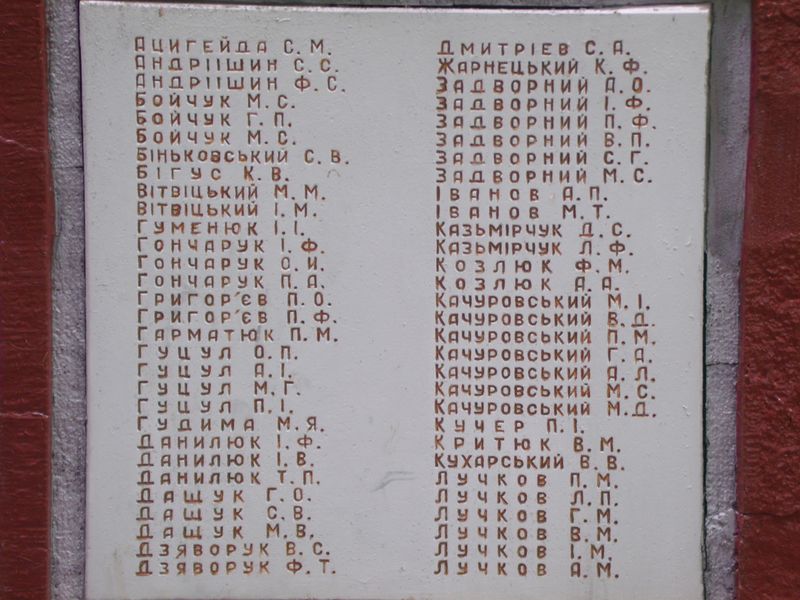 АЦИГЕЙДА С. М.
АНДРІІШИН С. С.
АНДРІІШИН Ф. С.
БОЙЧУК М. С.
БОЙЧУК Г. П.
БОЙЧУК М. С.
БІНЬКОВСЬКИЙ С. В.
БІГУС К. В.
ВІТВІЦЬКИЙ М. М.
ВІТВІЦЬКИЙ І. М.
ГУМЕНЮК І. І.
ГОНЧАРУК І. Ф.
ГОНЧАРУК О. И.
ГОНЧАРУК П. А.
ГРИГОР'ЄВ П. О.
ГРИГОР'ЄВ П. Ф.
ГАРМАТЮК П. М.
ГУЦУЛ О. П.
ГУЦУЛ А. І.
ГУЦУЛ М. Г.
ГУЦУЛ П. І.
ГУДИМА М. Я.
ДАНИЛЮК І. Ф.
ДАНИЛЮК І. В.
ДАНИЛЮК Т. П.
ДАЩУК Г. О.
ДАЩУК С. В.
ДАЩУК М. В.
ДЗЯВОРУК В. С.
ДЗЯВОРУК Ф. Т.
ДМИТРІЕВ С. А.
ЖАРНЕЦЬКИЙ К. Ф.
ЗАДВОРНИЙ А. О.
ЗАДВОРНИЙ І. Ф.
ЗАДВОРНИЙ П. Ф.
ЗАДВОРНИЙ В. П.
ЗАДВОРНИЙ С. Г.
ЗАДВОРНИЙ М. С.
ІВАНОВ А. П.
ІВАНОВ М. Т.
КАЗЬМІРЧУК Д. С.
КАЗЬМІРЧУК Л. Ф.
КОЗЛЮК Ф. М.
КОЗЛЮК А. А.
КАЧУРОВСЬКИЙ М. І.
КАЧУРОВСЬКИЙ В. Д.
КАЧУРОВСЬКИЙ П. М.
КАЧУРОВСЬКИЙ Г. А.
КАЧУРОВСЬКИЙ А. Л.
КАЧУРОВСЬКИЙ М. С.
КАЧУРОВСЬКИЙ М. Д.
КУЧЕР П. І.
КРИТЮК В. М.
КУХАРСЬКИЙ В. В.
ЛУЧКОВ П. М.
ЛУЧКОВ Л. П.
ЛУЧКОВ Г. М.
ЛУЧКОВ В. М.
ЛУЧКОВ І. М.
ЛУЧКОВ А. М.